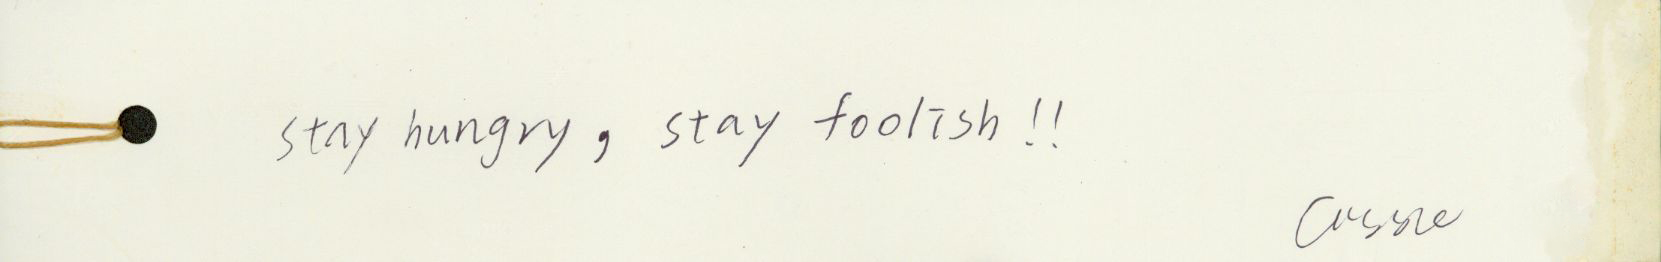 stay hungry, stay foolish!!
Cassie